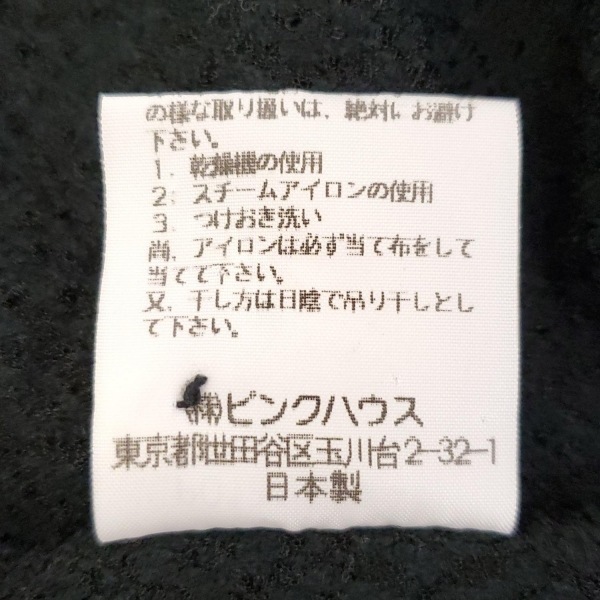 の様な取り扱いは、絶対にお避け
下さい。
1. 乾燥機の使用
2. スチームアイロンの使用
3. つけおき洗い
尚、アイロンは必ず当て布をして
当てて下さい。
又、干し方は日陰で吊り干しとし
て下さい。
(株)ピンクハウス
東京都世田谷区玉川台2-32-1
日本製